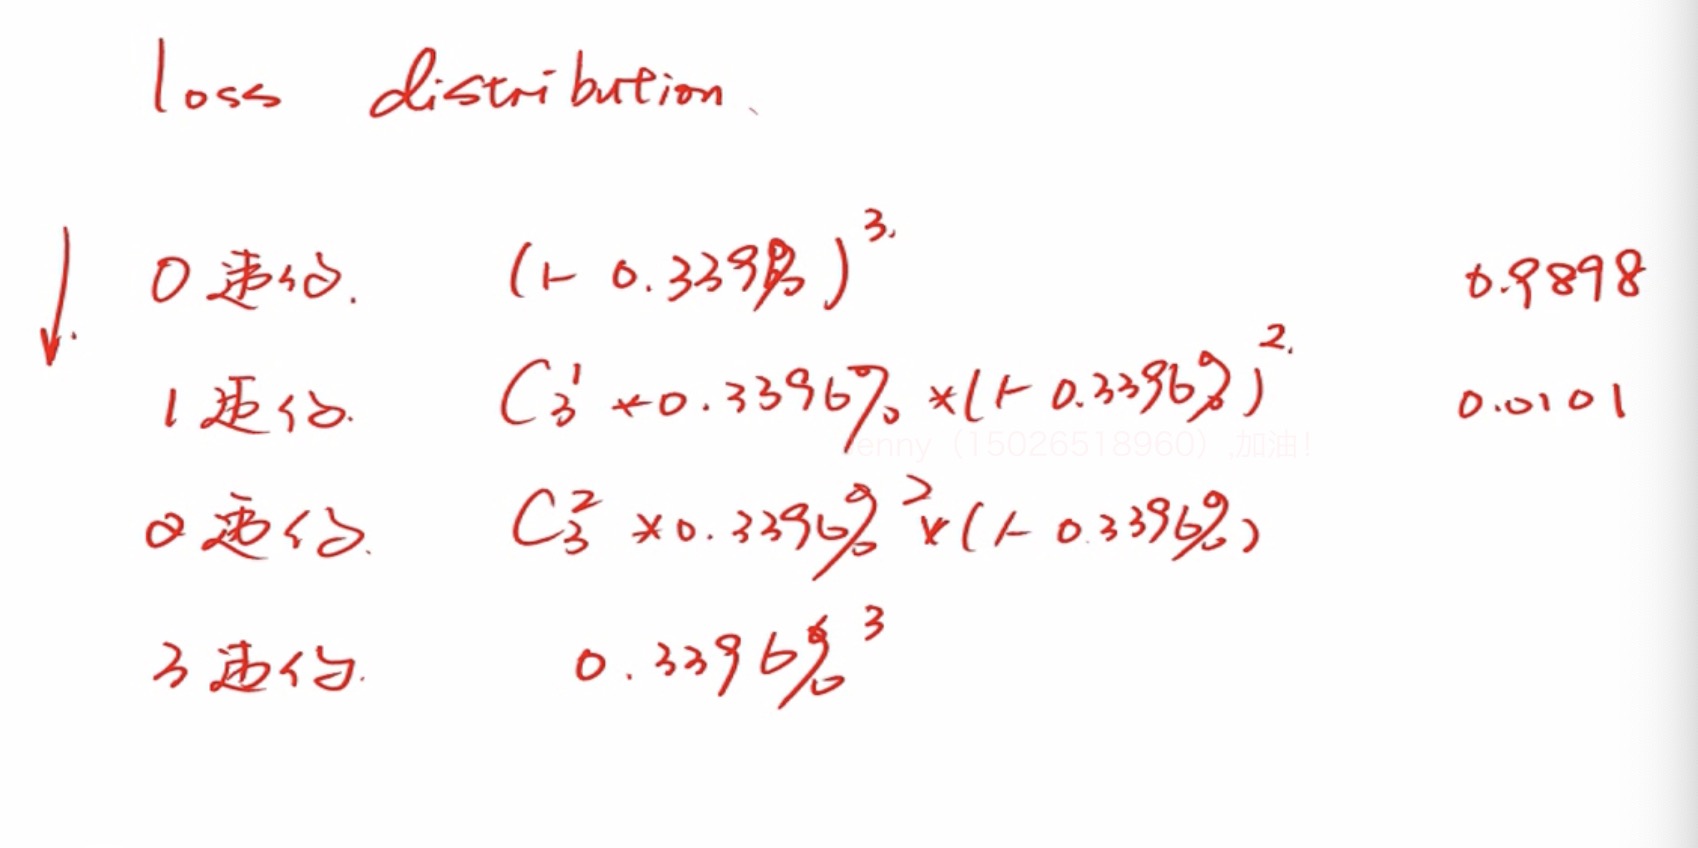 loss distribution.
0 违约. (1- 0.339%)³. 0.9898
1 违约. C₃¹ *0.3396% *(1- 0.3396%)². 0.0101
Jenny（15026518960）,加油!
2 违约. C₃² *0.3396%² *(1- 0.3396%)
3 违约. 0.3396%³